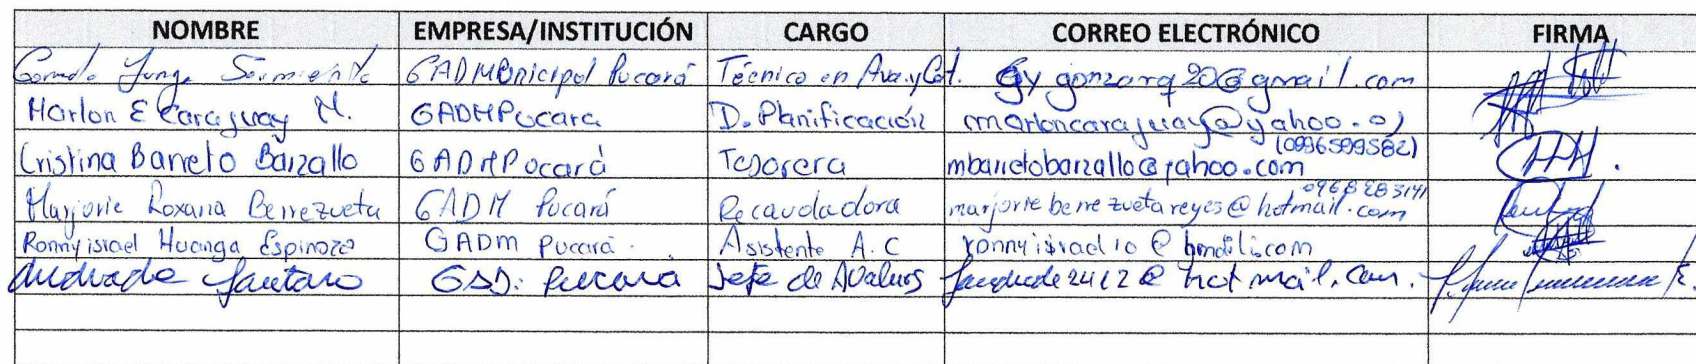 NOMBRE EMPRESA/INSTITUCIÓN CARGO CORREO ELECTRÓNICO FIRMA
Sarmiento GADMUnicipal Pucará Técnico en Ava.y Cat. gygonzarq20@gmail.com
Marlon E Caraguay M. GADMPucara D. Planificación marloncaraguay@yahoo.es
(0996599582)
Cristina Barreto Barzallo GADMPucará Tesorera mbarretobarzallo@yahoo.com
0968283141
Marjorie Roxana Berrezueta GADM Pucará Recaudadora marjorieberrezuetareyes@hotmail.com
Ronny israel Huanga Espinoza GADM Pucará. Asistente A.C
Andrade Lautaro GAD. Pucará Jefe de Avaluos